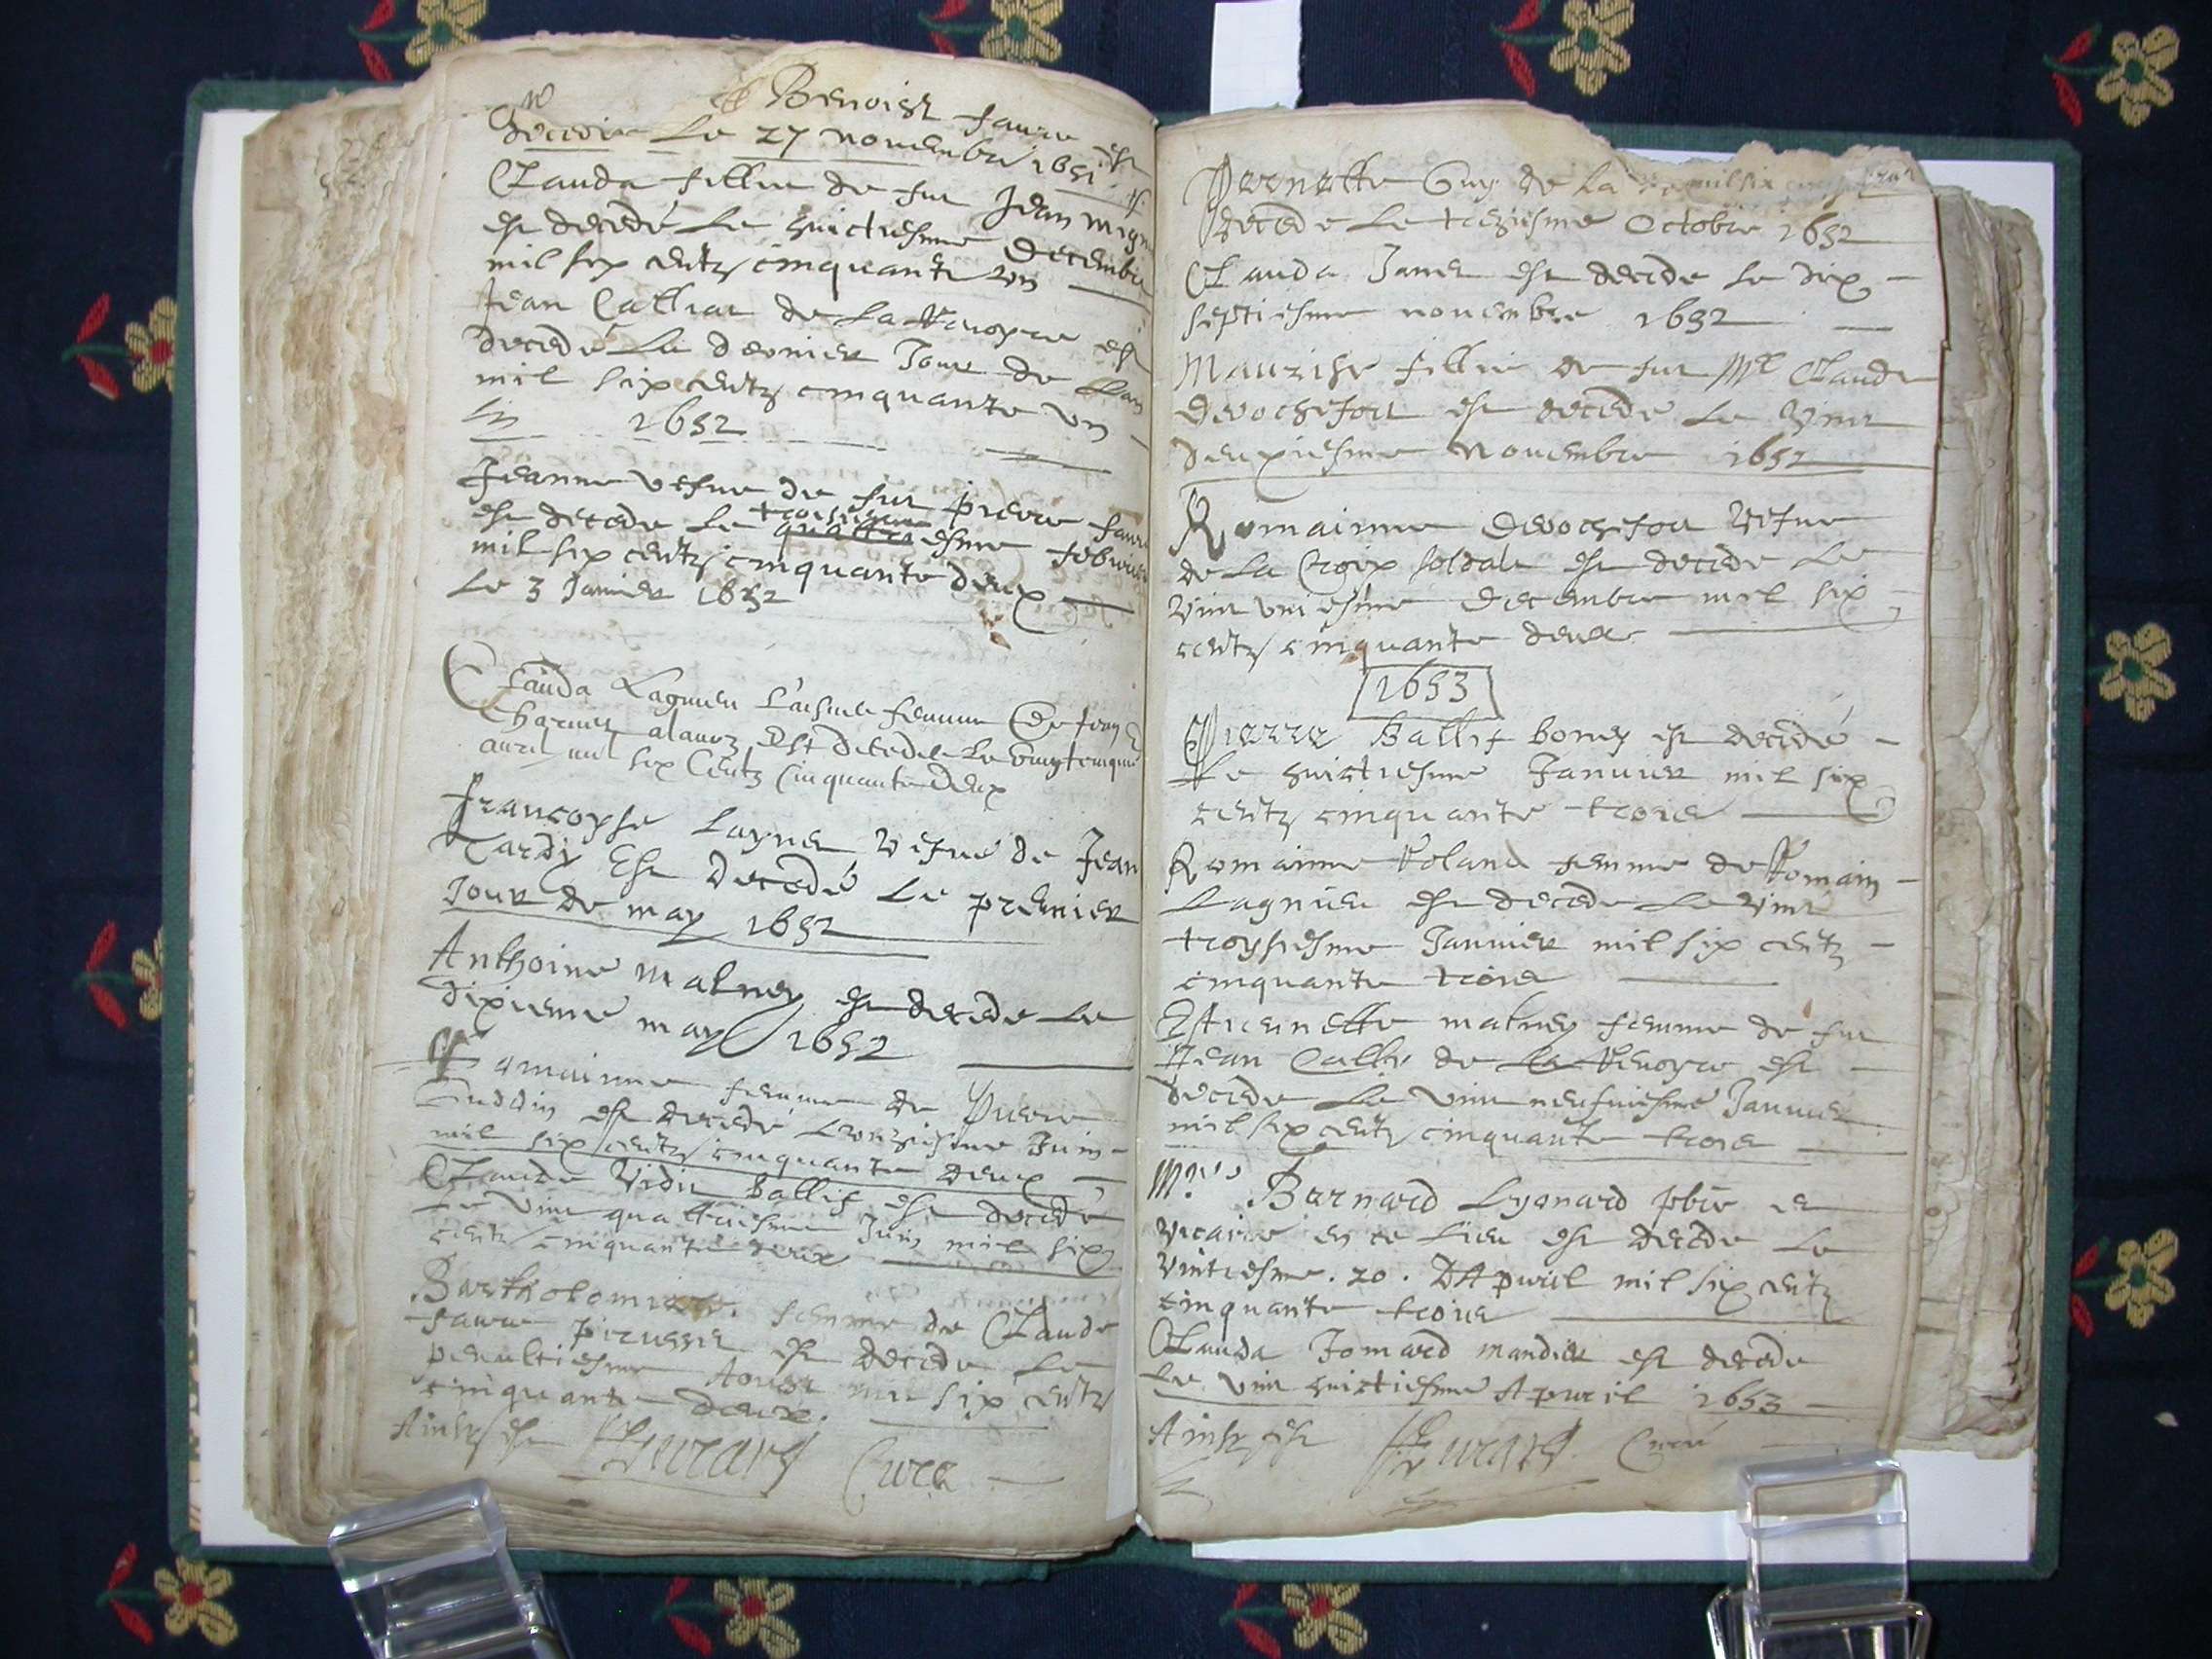 Benoist faure est
decedé Le 27 nouembre 1651
Clauda fillie de fut Jean
est decedé Le huictiesme Decembre
mil six centz cinquante vn
Jean Calliat de La est
decedé Le dernier Jour de Lan
mil six centz cinquante vn
1652
Jeanne vefue de fut pierre faure
est decede Le troisiesme quattriesme febvrier
mil six centz cinquante deux
Le 3 Januier 1652
Clauda Lagnieu femme De Jean
Est Decedée Le
auril mil six Centz Cinquante Deux
francoyse Layner vefue de Jean
Tardy Est decedé Le premier
Jour de may 1652
Anthoine malney est decede Le
dixieme may 1652
Romainne femme de Pierre
est decedé Juin
mil six centz cinquante deux
Claude Vidit ballif est decedé
Le vint quattriesme Juin mil six
centz cinquante deux
Bartholomie femme de Claude
faure est decede Le
penultiesme Aoust mil six centz
cinquante deux.
Ainsy est Curé
Pernette Guy de La
decede Le treziesme Octobre 1652
Clauda Janet est decede Le dix
septiesme nouembre 1652
Mauzise fillie de fut Mr Claude
Derochefort est decedé Le Vint
deuxiesme Nouembre 1652
Romainne Derochefort Vefue
de La Croix soldate est decede Le
Vint vniesme Decembre mil six
centz cinquante deux
1653
Pierre Ballif boney est decedé
Le huictiesme Januier mil six
centz cinquante trois
Romainne Roland femme de Romain
Lagnieu est decede Le Vint
troysiesme Januier mil six centz
cinquante trois
Estiennette malney femme de fut
Jean Cally de La est
decede Le Vint neufuiesme Januier
mil six centz cinquante trois
Mre Bernard Lyonard pbre et
vicaire en ce Lieu est decede Le
Vintiesme . 20 . DApuril mil six centz
cinquante trois
Clauda Jomard mandier est decede
Le vint huictiesme Apuril 1653
Ainsy est Curé